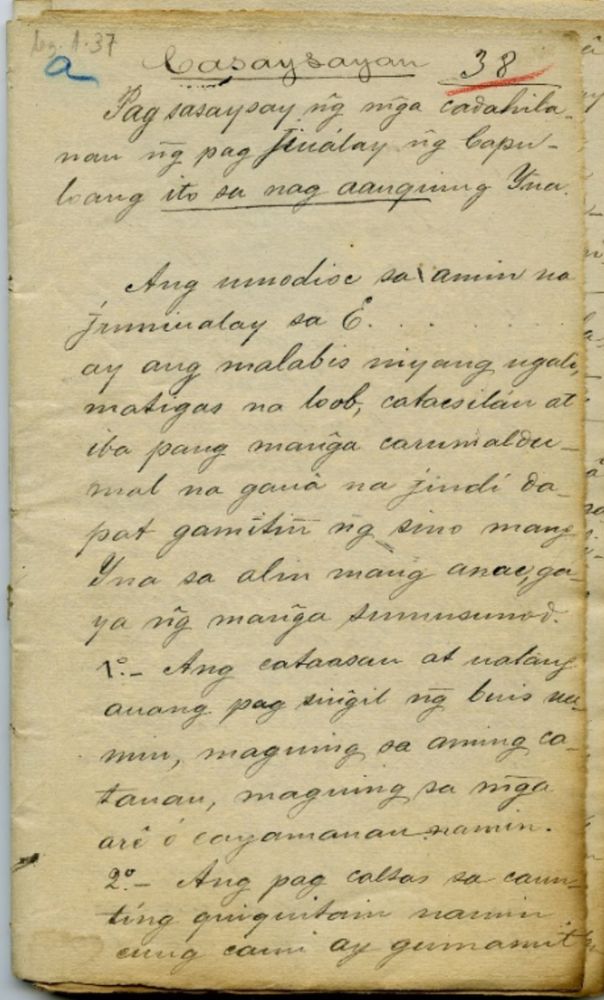 Leg. 1·37
a
Casaysayan 38
Pag sasaysay n͠g m͠ga cadahila-
nan n͠g pag jiuálay n͠g Capu-
loang ito sa nag aanquing Yna.
Ang umodioc sa amin na
jumiualay sa E. . . . . . . .
ay ang malabis niyang ugali,
matigas na loob, catacsilán at
iba pang man͠ga carumaldu-
mal na gauâ na jindi da-
pat gamitin n͠g sino mang
Yna sa alin mang anac, ga-
ya n͠g man͠ga sumusunod.
1º.- Ang cataasan at ualang
auang pag sin͠gil n͠g buis na-
min, maguing sa aming ca-
tauan, maguing sa m͠ga
arê ó cayamanan namin.
2º.- Ang pag caltas sa caun-
ting quiquitain namin
cung cami ay gumamit